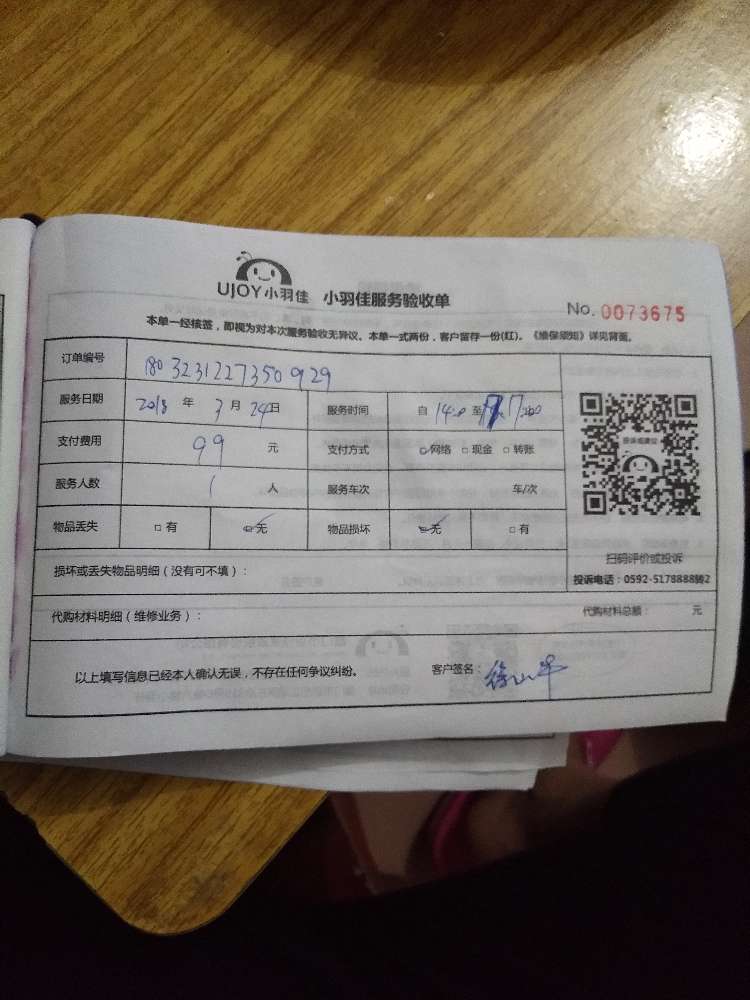 UJOY小羽佳 小羽佳服务验收单
No. 0073675
本单一经接签，即视为对本次服务验收无异议。本单一式两份，客户留存一份(红)。《维保须知》详见背面。
订单编号 1803231227350929
服务日期 2018 年 3 月 24日 服务时间 自 14:00 至 17:00
支付费用 99 元 支付方式 □网络 □现金 □转账
服务人数 1 人 服务车次 车/次
物品丢失 □有 □无 物品损坏 □无 □有
扫码评价或投诉
投诉电话：0592-5178888转2
损坏或丢失物品明细（没有可不填）：
代购材料明细（维修业务）： 代购材料总额： 元
以上填写信息已经本人确认无误，不存在任何争议纠纷。 客户签名：